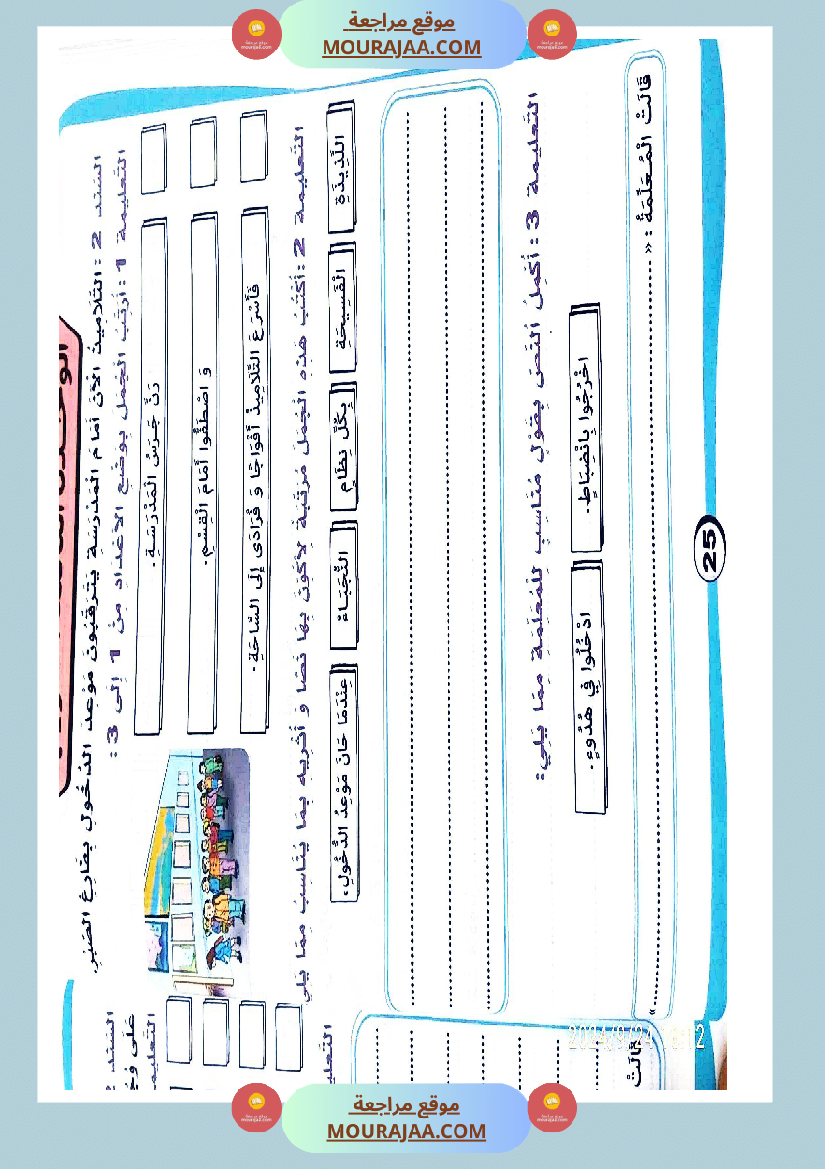 موقع مراجعة
MOURAJAA.COM
السَّنَد 2 : التَّلَامِيذُ الآنَ أَمَامَ الْمَدْرَسَةِ يَتَرَقَّبُونَ مَوْعِدَ الدُّخُولِ بِفَارِغِ الصَّبْرِ.
التَّعْلِيمَة 1 : أُرَتِّبُ الْجُمَلَ بِوَضْعِ الأَعْدَادِ مِنْ 1 إِلَى 3 :
رَنَّ جَرَسُ الْمَدْرَسَةِ.
وَ اصْطَفُّوا أَمَامَ الْقِسْمِ.
فَأَسْرَعَ التَّلَامِيذُ أَفْوَاجًا وَ فُرَادَى إِلَى السَّاحَةِ.
التَّعْلِيمَة 2 : أَكْتُبُ هَذِهِ الْجُمَلَ مُرَتَّبَةً لِأُكَوِّنَ بِهَا نَصًّا وَ أُثْرِيهِ بِمَا يُنَاسِبُ مِمَّا يَلِي
اللَّذِيذَةِ
الْفَسِيحَةِ
بِكُلِّ نِظَامٍ
النُّجَبَاءُ
عِنْدَمَا حَانَ مَوْعِدُ الدُّخُولِ.
التَّعْلِيمَة 3 : أُكْمِلُ النَّصَّ بِقَوْلٍ مُنَاسِبٍ لِلْمُعَلِّمَةِ مِمَّا يَلِي:
اخْرُجُوا بِانْضِبَاطٍ.
ادْخُلُوا فِي هُدُوءٍ.
قَالَتْ الْمُعَلِّمَةُ : «
»
25
السَّنَد
عَلَى
قَالَتْ
موقع مراجعة
MOURAJAA.COM